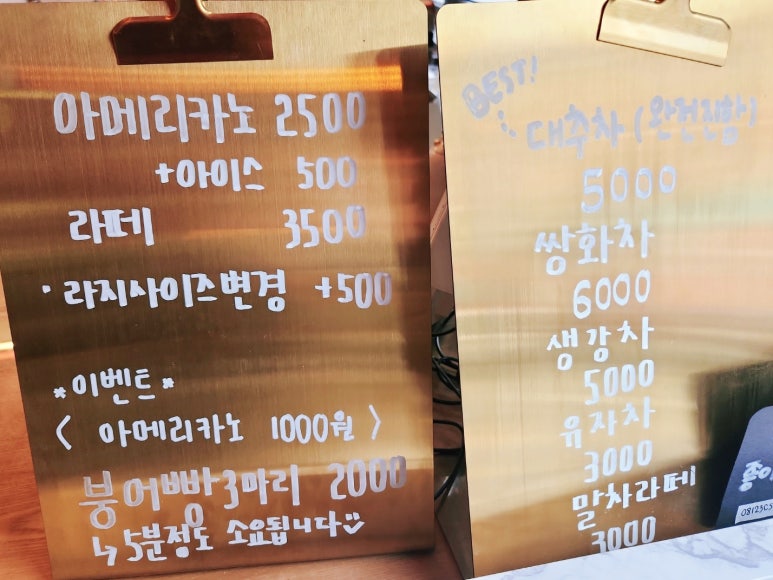 아메리카노 2500
+아이스 500
라떼 3500
· 라지사이즈변경 +500
*이벤트*
< 아메리카노 1000원 >
붕어빵 3마리 2000
↳ 5분정도 소요됩니다
BEST!
대추차 (완전진함)
5000
쌍화차
6000
생강차
5000
유자차
3000
말차라떼
3000